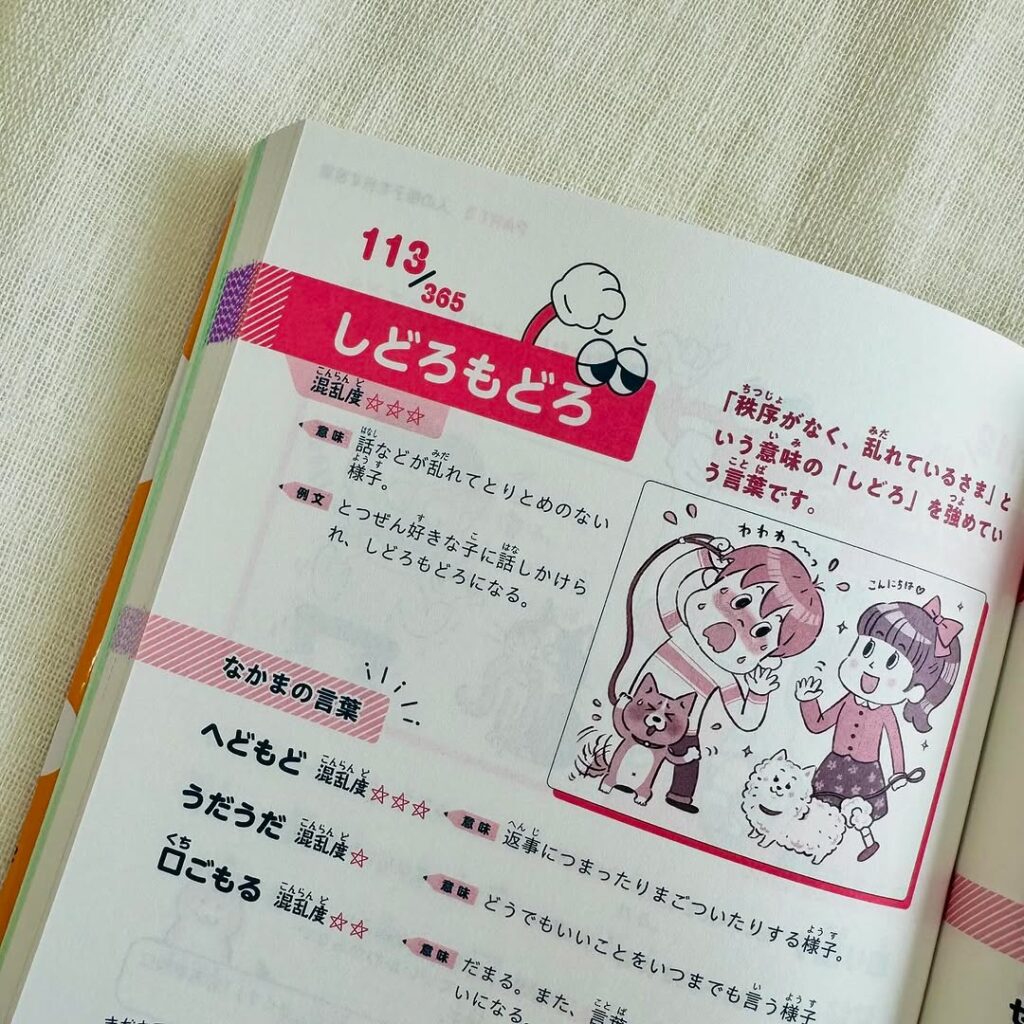 113/365
しどろもどろ
混乱度☆☆☆
意味 話などが乱れてとりとめのない
様子。
例文 とつぜん好きな子に話しかけら
れ、しどろもどろになる。
「秩序がなく、乱れているさま」と
いう意味の「しどろ」を強めてい
う言葉です。
わわわ〜〜っ
こんにちは♡
なかまの言葉
へどもど 混乱度☆☆☆
意味 返事につまったりまごついたりする様子。
うだうだ 混乱度☆
意味 どうでもいいことをいつまでも言う様子
口ごもる 混乱度☆☆
意味 だまる。また、言葉
いになる。